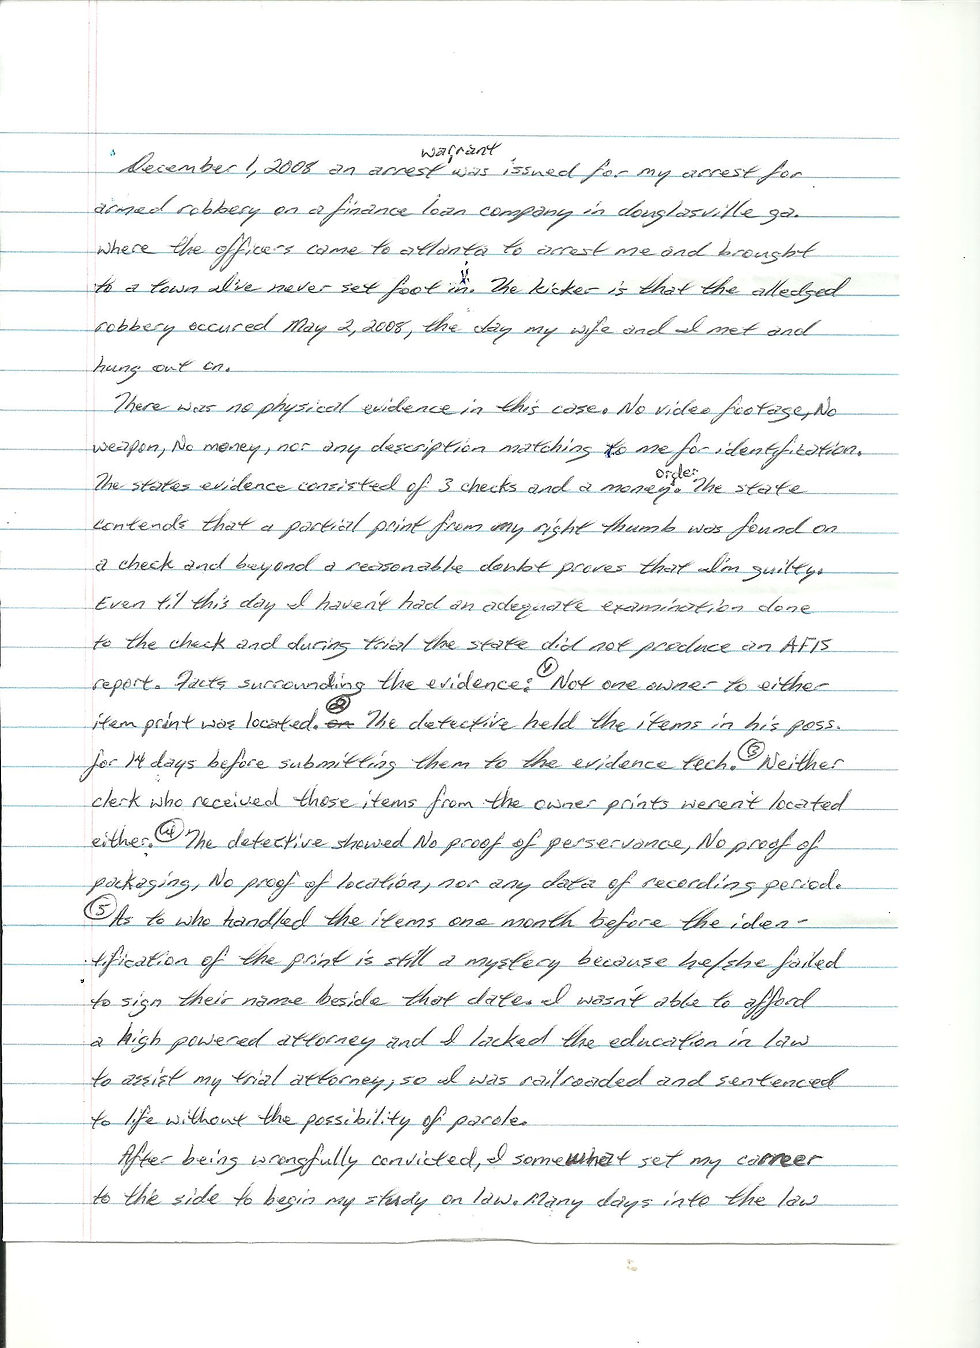 December 1, 2008 an arrest warrant was issued for my arrest for
armed robbery on a finance loan company in douglasville ga.
where the officers came to atlanta to arrest me and brought
to a town I've never set foot in. The kicker is that the alledged
robbery occured May 2, 2008, the day my wife and I met and
hung out on.
There was no physical evidence in this case. No video footage, No
weapon, No money, nor any description matching to me for identification.
The states evidence consisted of 3 checks and a money order. The state
contends that a partial print from my right thumb was found on
a check and beyond a reasonable doubt proves that I'm guilty.
Even til this day I haven't had an adequate examination done
to the check and during trial the state did not produce an AFIS
report. Facts surrounding the evidence: ① Not one owner to either
item print was located. ② The detective held the items in his poss.
for 14 days before submitting them to the evidence tech. ③ Neither
clerk who received those items from the owner prints weren't located
either. ④ The detective showed No proof of perservance, No proof of
packaging, No proof of location, nor any data of recording period.
⑤ As to who handled the items one month before the iden-
tification of the print is still a mystery because he/she failed
to sign their name beside that date. I wasn't able to afford
a high powered attorney and I lacked the education in law
to assist my trial attorney, so I was railroaded and sentenced
to life without the possibility of parole.
After being wrongfully convicted, I somewhat set my carreer
to the side to begin my study on law. Many days into the law